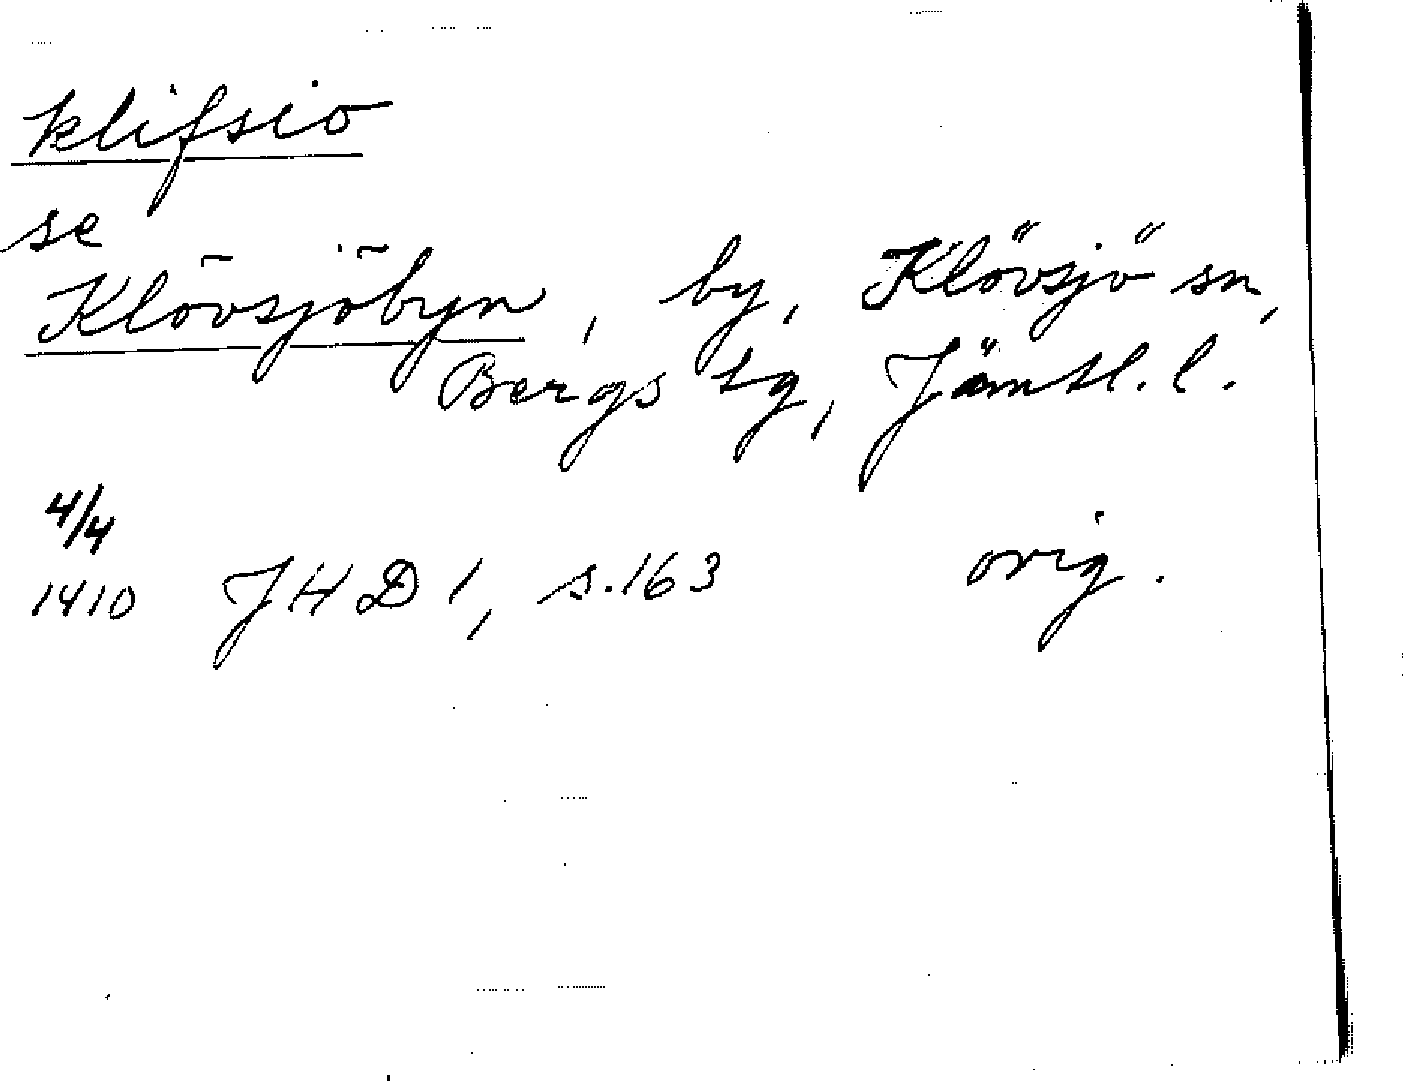 klifsio
se
Klövsjöbyn, by, Klövsjö sn,
Bergs tg, Jämtl. l.
4/4
1410 JHD 1, s. 163 orig.